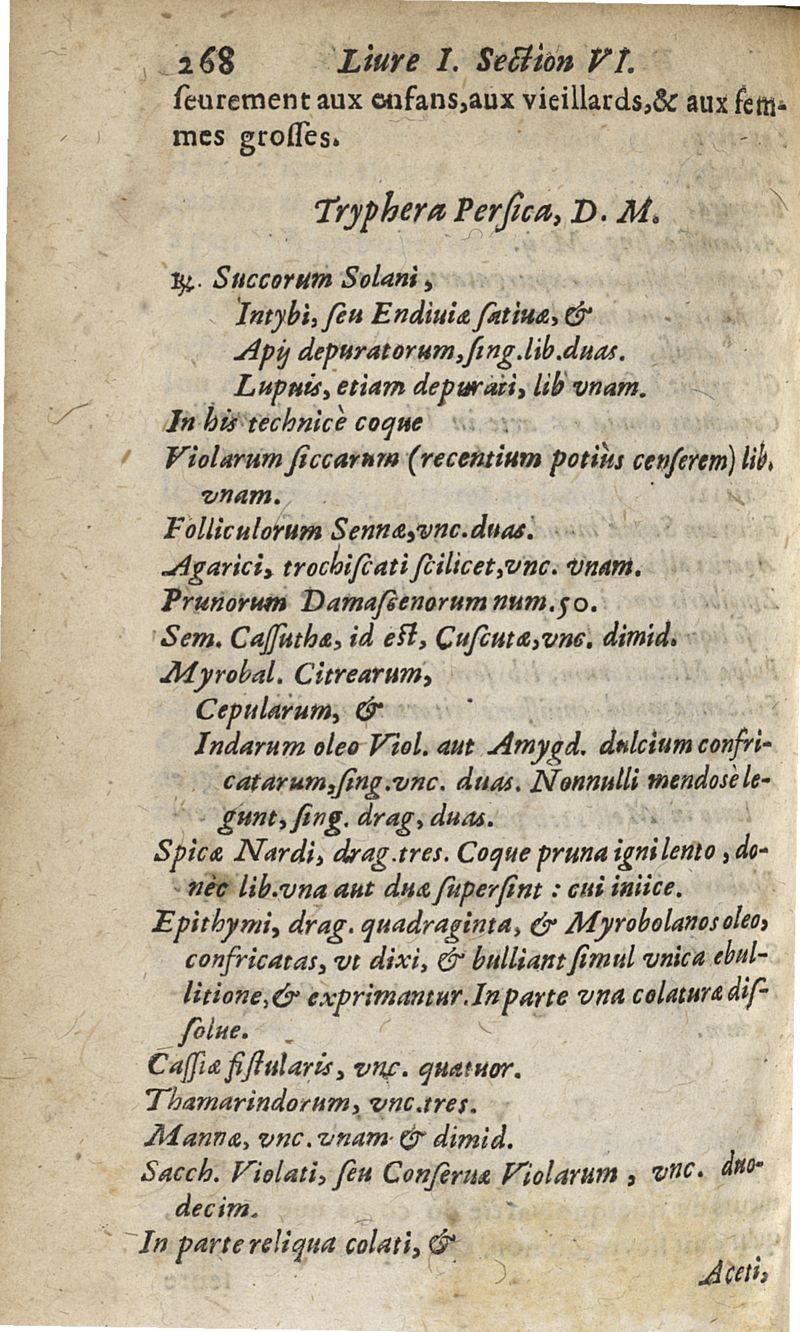 268 Liure I. Section VI.
ſeurement aux enfans,aux vieillards,& aux fem-
mes groſſes.
Tryphera Perſica, D. M.
℞. Succorum Solani,
Intybi, ſeu Endiuiæ ſatiuæ, &
Apij depuratorum,ſing.lib.duas.
Lupuis, etiam depurati, lib vnam.
In his technicè coque
Violarum ſiccarum (recentium potiùs cenſerem) lib.
vnam.
Folliculorum Sennæ,vnc.duas.
Agarici, trochiſcati ſcilicet,vnc. vnam.
Prunorum Damaſcenorum num.50.
Sem. Caſſuthæ, id eſt, Cuſcutæ,vnc. dimid.
Myrobal. Citrearum,
Cepularum, &
Indarum oleo Viol. aut Amygd. dulcium confri-
catarum,ſing.vnc. duas. Nonnulli mendosè le-
gunt, ſing. drag, duas.
Spicæ Nardi, drag.tres. Coque pruna igni lento, do-
nec lib.vna aut duæ ſuperſint : cui iniice.
Epithymi, drag. quadraginta, & Myrobolanos oleo,
confricatas, vt dixi, & bulliant ſimul vnica ebul-
litione,& exprimantur.In parte vna colaturæ diſ-
ſolue.
Caſſiæ fiſtularis, vnc. quatuor.
Thamarindorum, vnc.tres.
Mannæ, vnc. vnam & dimid.
Sacch. Violati, ſeu Conſeruæ Violarum, vnc. duo-
decim.
In parte reliqua colati, &
Aceti,